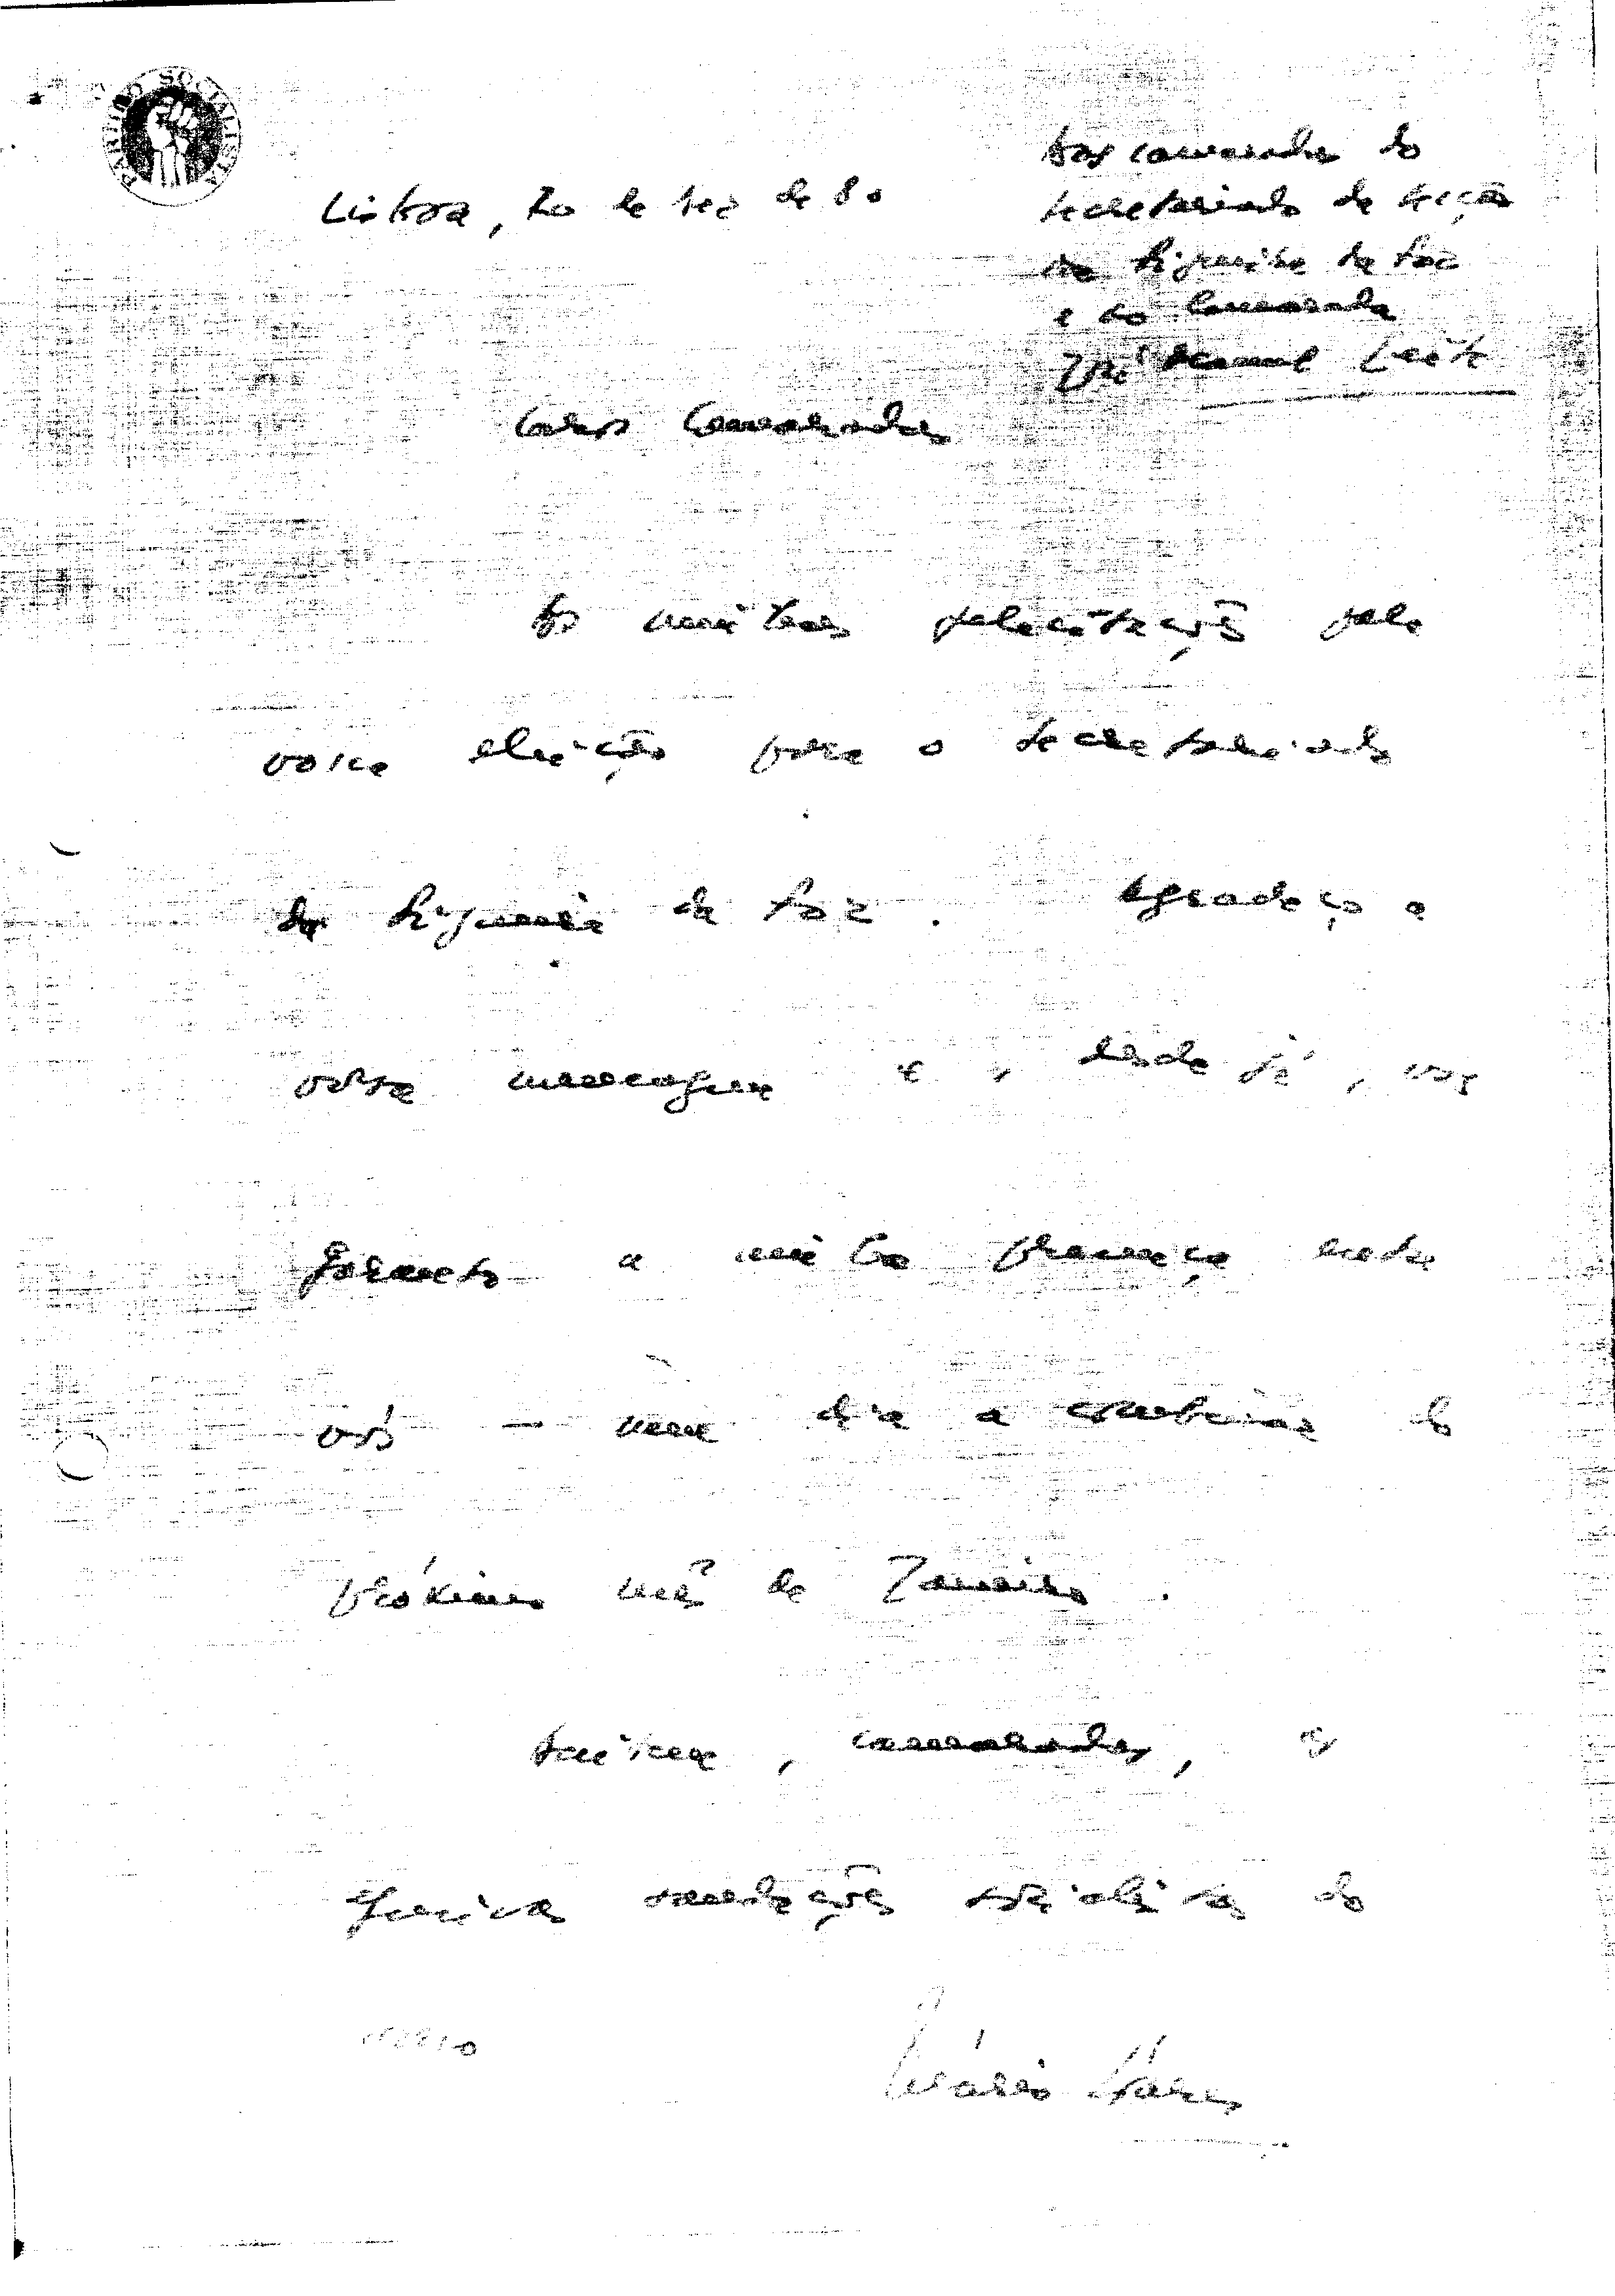 PARTIDO SOCIALISTA
Lisboa, 20 de Dez de 80
Aos camaradas do
Secretariado da Secção
da Figueira da Foz
e ao Camarada
José Manuel Leite
Caros Camaradas
As minhas felicitações pela
vossa eleição para o Secretariado
da Figueira da Foz. Agradeço a
vossa mensagem e, desde já, vos
garanto a minha presença entre
vós – num dia a combinar do
próximo mês de Janeiro.
Aceitem, camaradas, as
saudações socialistas do
Mário Soares